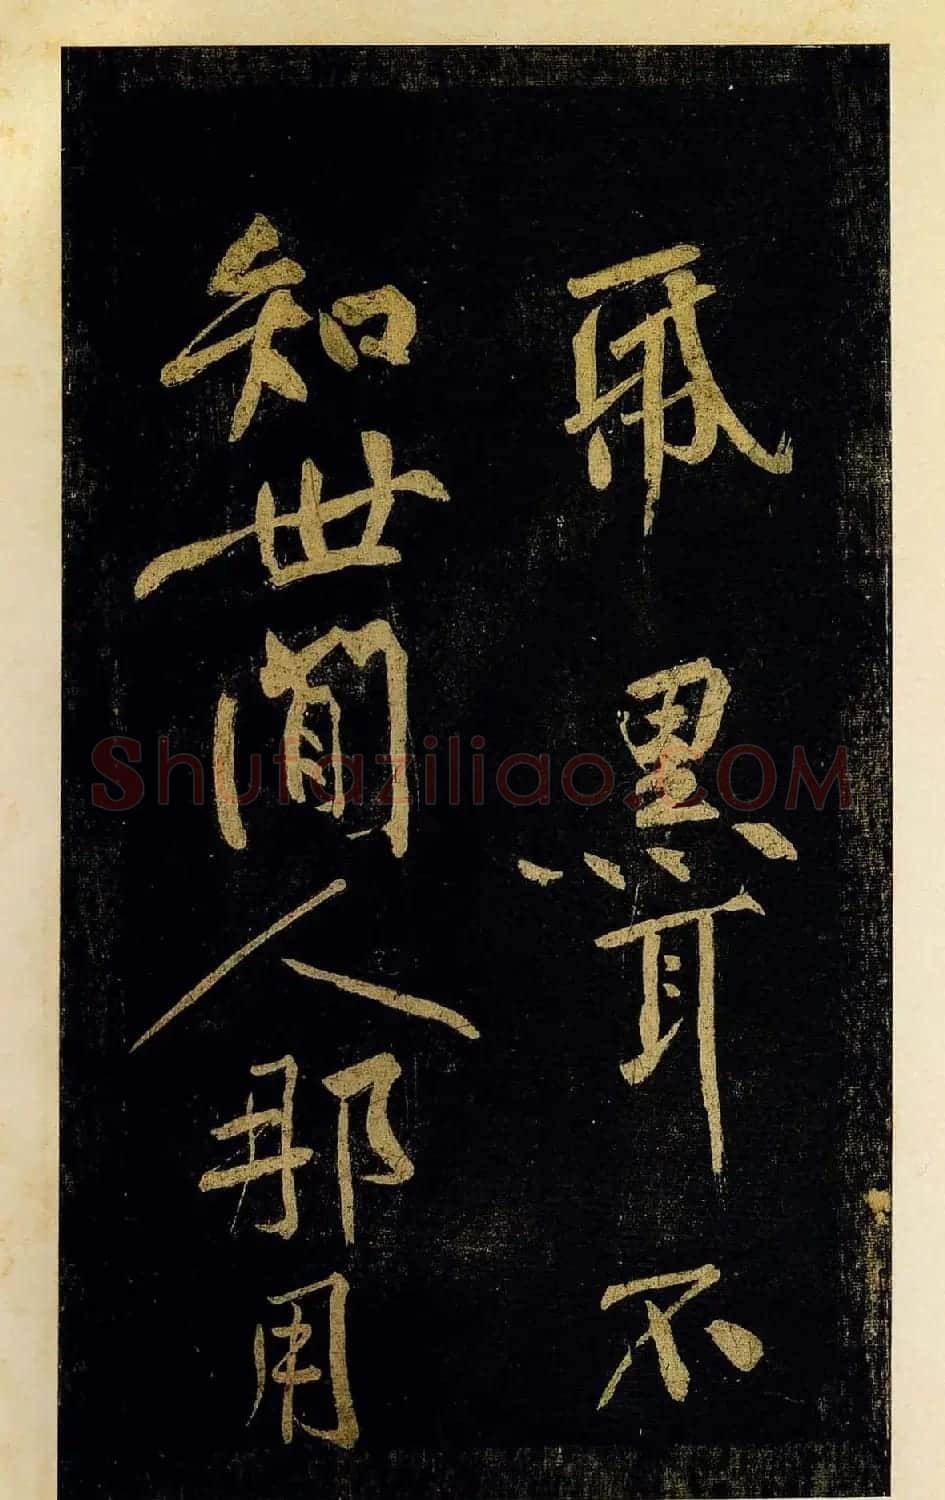 黑耳不
知世間人那用
Shufaziliao.COM